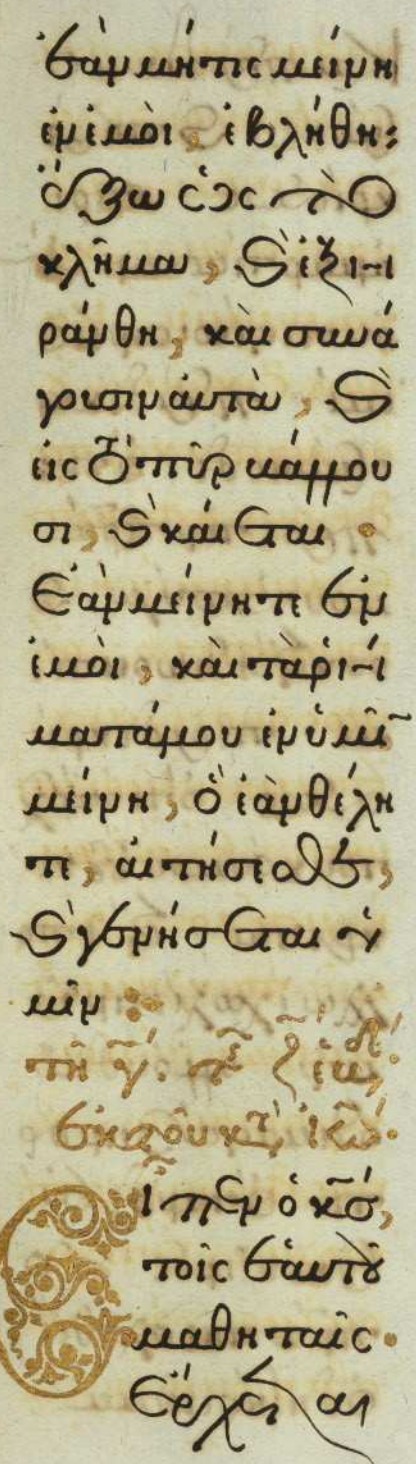 ἐὰν μή τις μείνη
ἐν ἐμοὶ, ἐβλήθη:
ἔξω ὡς τὸ
κλῆμα, καὶ ἐξη-
ράνθη, καὶ συνά
γουσιν αὐτὰ, καὶ
εἰς τὸ πῦρ βάλλου
σι, καὶ καίεται·
Ἐὰν μείνητε ἐν
ἐμοὶ, καὶ τὰ ῥή-
ματά μου ἐν ὑμῖ
μείνη, ὃ ἐὰν θέλη
τε, αἰτήσεσθε,
καὶ γενήσεται ὑ
μῖν :
τῆ γ΄. τῆς ζ ἑβδ,
ἐκ τοῦ κτ ἰω·
Εἶπεν ὁ κς,
τοῖς ἑαυτοῦ
μαθηταῖς·
Ἔρχεται